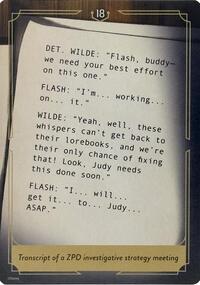 18
DET. WILDE: "Flash, buddy—
we need your best effort
on this one."
FLASH: "I'm... working...
on... it."
WILDE: "Yeah, well, these
whispers can't get back to
their lorebooks, and we're
their only chance of fixing
that! Look, Judy needs
this done soon."
FLASH: "I... will...
get it... to... Judy...
ASAP."
Transcript of a ZPD investigative strategy meeting